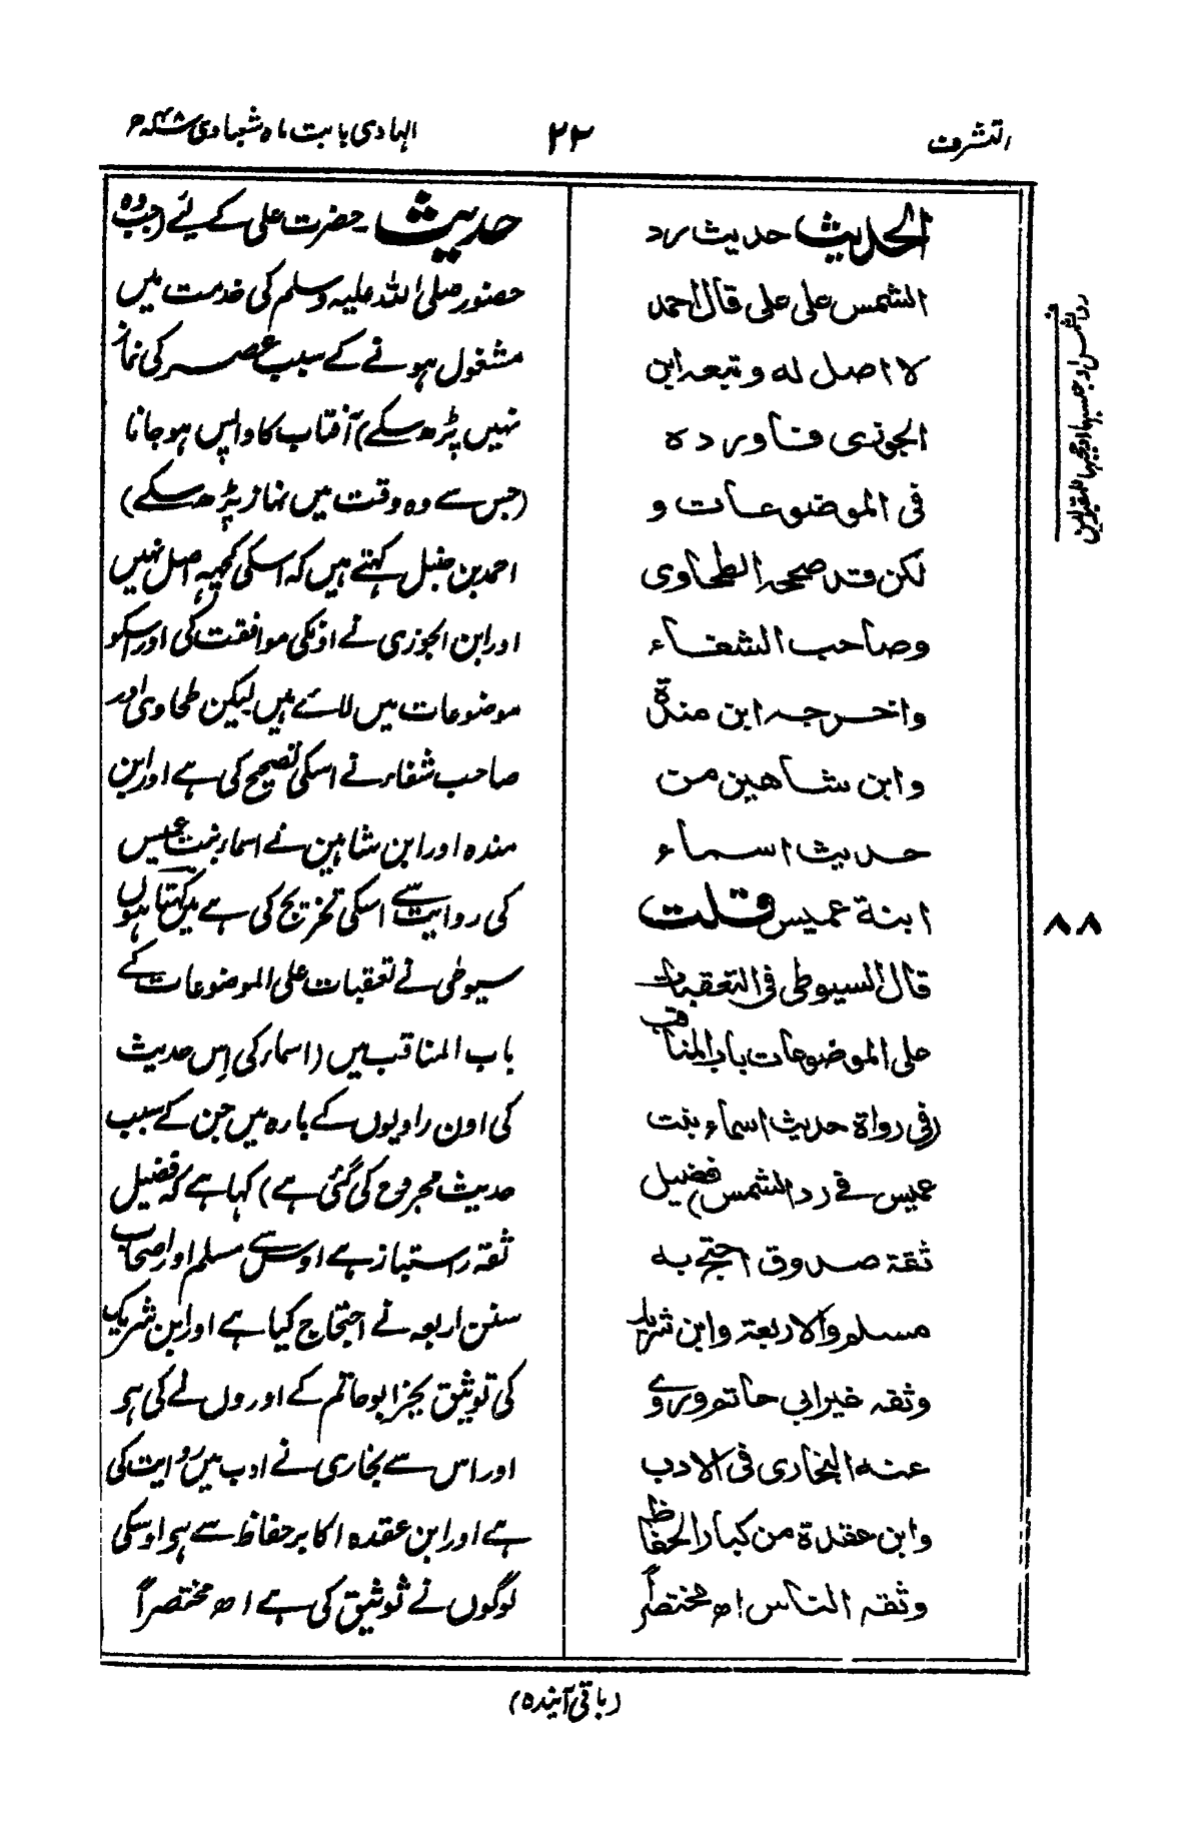 التشرف
۲۲
الہادی بابت ماہ
الحدیث حدیث رد
الشمس علی علی قال احمد
لا اصل له و تبعه ابن
الجوزی فاورده
فی الموضوعات و
لکن قد صححه الطحاوی
وصاحب الشفاء
واخرجه ابن مندة
وابن شاهین من
حدیث اسماء
ابنة عمیس قلت
قال السیوطی فی التعقبات
علی الموضوعات باب المناقب
(فی رواة حدیث اسماء بنت
عمیس فے رد الشمس) فضیل
ثقة صدوق احتج به
مسلم والاربعة وابن شریک
وثقه غیر ابی حاتم وروے
عنه البخاری فی الادب
وابن عقدة من کبار الحفاظ
وثقه الناس اھ مختصراً
حدیث حضرت علی کے لئے (جب وہ
حضور صلی اللہ علیہ وسلم کی خدمت میں
مشغول ہونے کے سبب عصر کی نماز
نہیں پڑھ سکے) آفتاب کا واپس ہو جانا
(جس سے وہ وقت میں نماز پڑھ سکے)
احمد بن حنبل کہتے ہیں کہ اسکی کچھ اصل نہیں
اور ابن الجوزی نے اونکی موافقت کی اور اسکو
موضوعات میں لائے ہیں لیکن طحاوی اور
صاحب شفاء نے اسکی تصحیح کی ہے اور ابن
مندہ اور ابن شاہین نے اسماء بنت عمیس
کی روایت سے اسکی تخریج کی ہے میں کہتا ہوں
سیوطی نے تعقبات علی الموضوعات کے
باب المناقب میں (اسماء کی اِس حدیث
کی اون راویوں کے بارہ میں جن کے سبب
حدیث مجروح کی گئی ہے) کہا ہے کہ فضیل
ثقہ راستباز ہے اوس سے مسلم اور اصحاب
سنن اربعہ نے احتجاج کیا ہے اور ابن شریک
کی توثیق بجز ابو حاتم کے اوروں نے کی ہو
اور اس سے بخاری نے ادب میں روایت کی
ہے اور ابن عقدہ اکابر حفاظ سے ہو اوسکی
لوگوں نے توثیق کی ہے اھ مختصراً
۸۸
(باقی آیندہ)